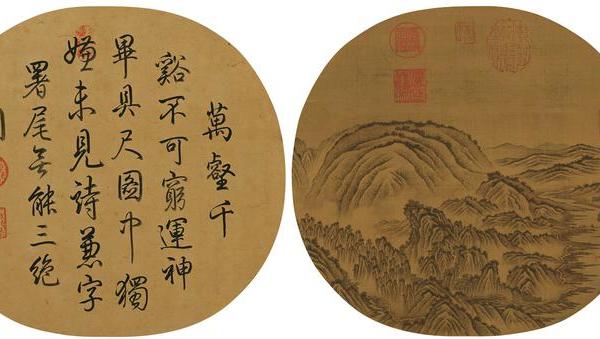 萬壑千
谿不可窮運神
畢具尺圖中獨
嫌未見詩兼字
署尾無能三絕